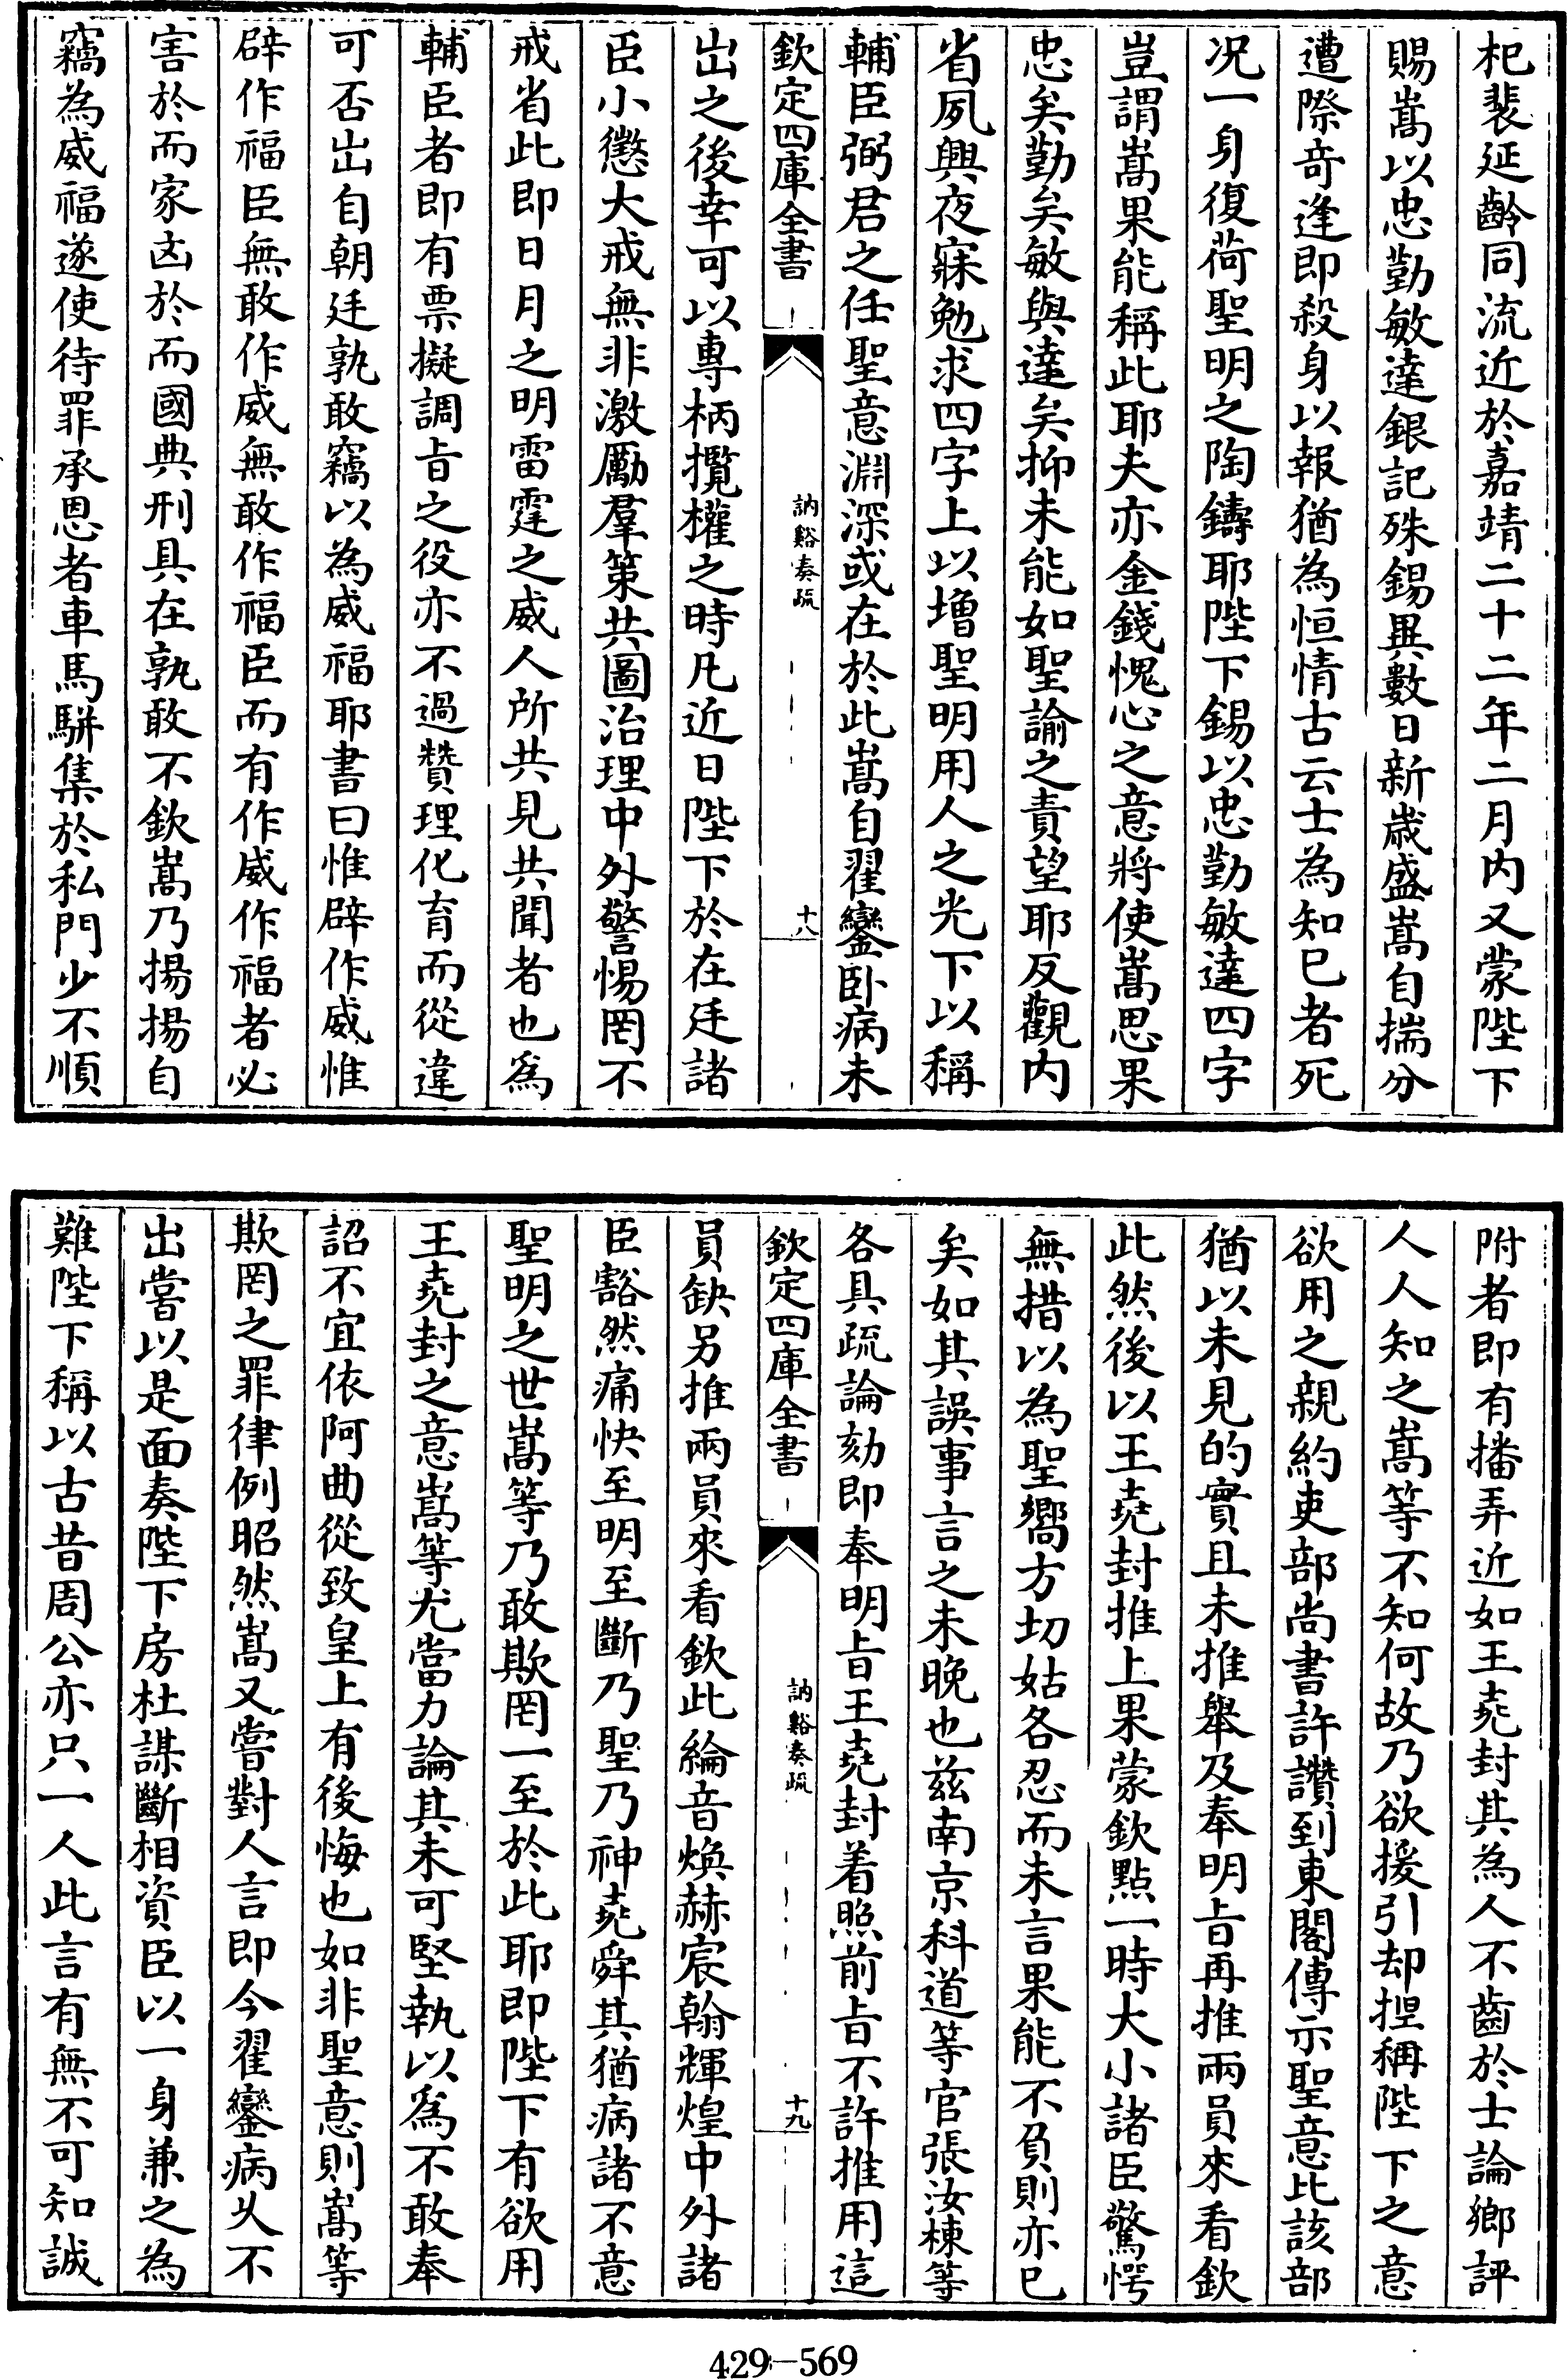 杞裴延齡同流近於嘉靖二十二年二月内又蒙陛下
賜嵩以忠勤敏達銀記殊錫異數日新嵗盛嵩自揣分
遭際奇逢即殺身以報猶為恒情古云士為知已者死
况一身復荷聖明之陶鑄耶陛下錫以忠勤敏達四字
豈謂嵩果能稱此耶夫亦金錢愧心之意將使嵩思果
忠矣勤矣敏與達矣抑未能如聖諭之責望耶反觀内
省夙興夜寐勉求四字上以增聖明用人之光下以稱
輔臣弼君之任聖意淵深或在於此嵩自翟鑾卧病未
欽定四庫全書
訥谿奏疏
十八
出之後幸可以專柄攬權之時凡近日陛下於在廷諸
臣小懲大戒無非激厲羣策共圖治理中外警惕罔不
戒省此即日月之明雷霆之威人所共見共聞者也為
輔臣者即有票擬調㫖之役亦不過贊理化育而從違
可否出自朝廷孰敢竊以為威福耶書曰惟辟作威惟
辟作福臣無敢作威無敢作福臣而有作威作福者必
害於而家凶於而國典刑具在孰敢不欽嵩乃揚揚自
竊為威福遂使待罪承恩者車馬駢集於私門少不順
附者即有播弄近如王堯封其為人不齒於士論鄉評
人人知之嵩等不知何故乃欲援引却捏稱陛下之意
欲用之親約吏部尚書許讚到東閣傳示聖意比該部
猶以未見的實且未推舉及奉明㫖再推兩員來看欽
此然後以王堯封推上果蒙欽點一時大小諸臣驚愕
無措以為聖嚮方切姑各忍而未言果能不負則亦已
矣如其誤事言之未晚也兹南京科道等官張汝棟等
各具疏論劾即奉明㫖王堯封着照前㫖不許推用這
欽定四庫全書
訥谿奏疏
十九
員缺另推兩員來看欽此綸音煥赫宸翰輝煌中外諸
臣豁然痛快至明至斷乃聖乃神堯舜其猶病諸不意
聖明之世嵩等乃敢欺罔一至於此耶即陛下有欲用
王堯封之意嵩等尤當力論其未可堅執以為不敢奉
詔不宜依阿曲從致皇上有後悔也如非聖意則嵩等
欺罔之罪律例昭然嵩又嘗對人言即今翟鑾病乆不
出嘗以是面奏陛下房杜謀斷相資臣以一身兼之為
難陛下稱以古昔周公亦只一人此言有無不可知誠
429—569